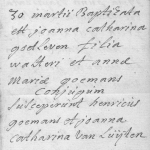 30 martii Baptizata
est joanna catharina
godseven filia
walteri et annæ
Mariæ goemans
conjugum
susceperunt henricus
goemans et joanna
catharina van Luijten